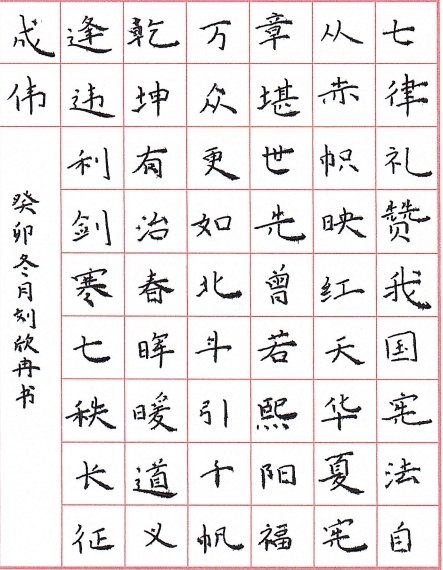 七律礼赞我国宪法自
从赤帜映红天华夏宪
章堪世先曾若熙阳福
万众更如北斗引千帆
乾坤有治春晖暖道义
逢违利剑寒七秩长征
成伟
癸卯冬月刘欣冉书